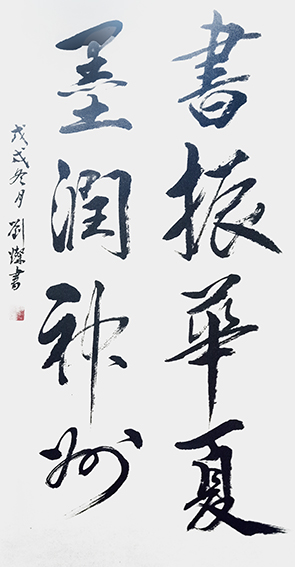 書振華夏
墨潤神州
戊戌冬月
劉燦書